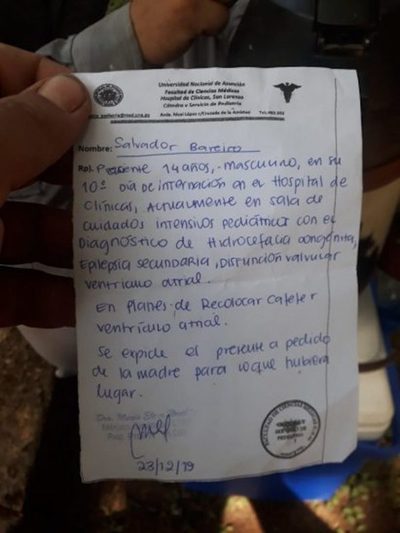 Universidad Nacional de Asunción
Facultad de Ciencias Médicas
Hospital de Clínicas, San Lorenzo
Cátedra y Servicio de Pediatría
Nombre: Salvador Bareiro
Rp/. Paciente 14 años, masculino, en su
10º Día de internación en el Hospital de
Clínicas, Actualmente en sala de
cuidados intensivos pediátricos con el
Diagnóstico de Hidrocefalia congénita,
Epilepsia secundaria, Disfunción valvular
ventrículo atrial.
En planes de Recolocar cateter
ventrículo atrial.
Se expide el presente a pedido
de la madre para lo que hubiera
lugar.
23/12/19